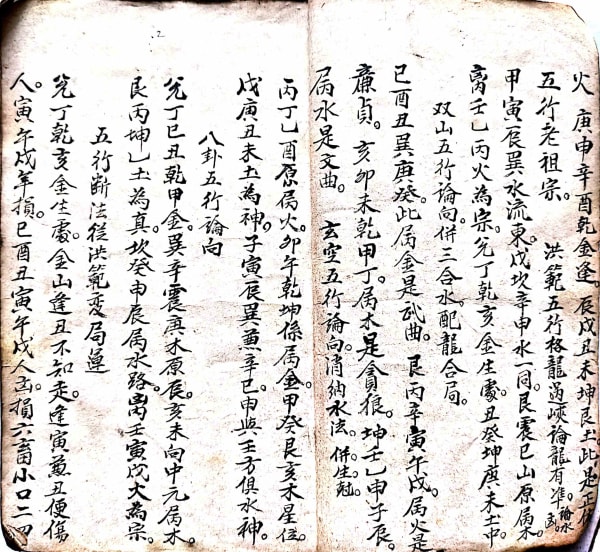 火 庚申辛酉乾金逢。辰戌丑未坤艮土。此是正
五行老祖宗。 洪範五行格龍過峽論龍有準。論水
甲寅辰巽水流東。戌坎辛申水一同。艮震巳山原属木。
离壬乙丙火為宗。兌丁乾亥金生處。丑癸坤庚未土中
双山五行論向併三合水配龍合局。
巳酉丑巽庚癸。此属金是武曲。 艮丙辛寅午戌。属火是
廉貞。亥卯未乾甲丁属木是貪狼。坤壬乙申子辰。
属水是文曲。 玄空五行論向消納水法。併生尅。
丙丁乙酉原属火。卯午乾坤係属金。甲癸艮亥木星位。
戌庚丑未土為神。子寅辰巽兼辛巳。申與壬方俱水神。
八卦五行論向
兌丁巳丑乾甲金。巽辛震庚木原辰。亥未向中元属木。
艮丙坤乙土為真。坎癸申辰属水路。离壬寅戌火為宗。
五行断法從洪範変局運
兌丁乾亥金生處。金山逢丑不知走。逢寅兼丑便傷
人。寅午戌年損。巳酉丑寅午戌人凶損六畜小口二四